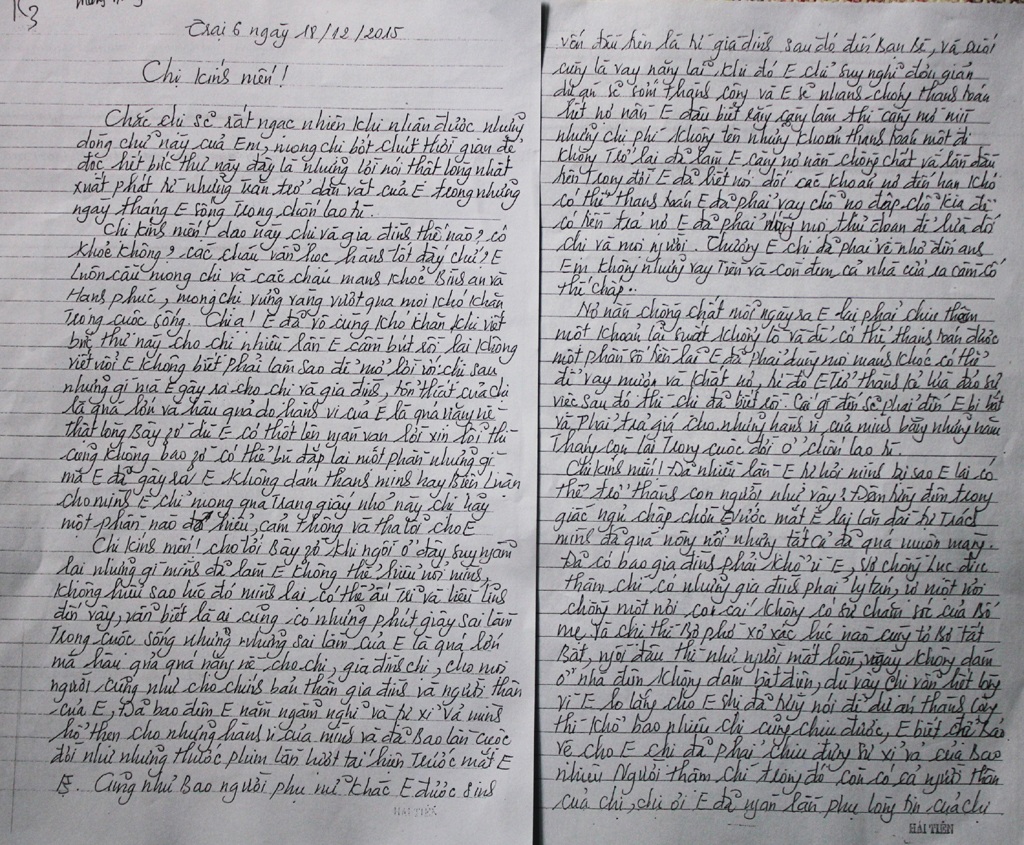 Trại 6 ngày 18/12/2015
Chị kính mến!
Chắc chị sẽ rất ngạc nhiên khi nhận được những
dòng chữ này của Em, mong chị bớt chút thời gian để
đọc hết bức thư này đây là những lời nói thật lòng nhất
xuất phát từ những trăn trở dằn vặt của E trong những
ngày tháng E sống trong chốn lao tù.
Chị kính mến! dạo này chị và gia đình thế nào? có
khoẻ không? các cháu vẫn học hành tốt đấy chứ? E
luôn cầu mong chị và các cháu mạnh khoẻ Bình an và
Hạnh phúc, mong chị vững vàng vượt qua mọi khó khăn
trong cuộc sống. Chị ạ! E đã vô cùng khó khăn khi viết
bức thư này cho chị nhiều lần E cầm bút rồi lại không
viết nổi E không biết phải làm sao để mở lời với chị sau
những gì mà E gây ra cho chị và gia đình, tổn thất của chị
là quá lớn và hậu quả do hành vi của E là quá nặng nề
thật lòng Bây giờ dù E có thốt lên ngàn vạn lời xin lỗi thì
cũng không bao giờ có thể bù đắp lại một phần những gì
mà E đã gây ra! E không dám thanh minh hay Biện Luận
cho mình E chỉ mong qua trang giấy nhỏ này chị hãy
một phần nào đó hiểu, cảm thông và tha lỗi cho E
Chị kính mến! cho tới Bây giờ khi ngồi ở đây suy ngẫm
lại những gì mình đã làm E không thể hiểu nổi mình,
không hiểu sao lúc đó mình lại có thể ấu trĩ và liều lĩnh
đến vậy, vẫn biết là ai cũng có những phút giây sai lầm
trong cuộc sống nhưng những sai lầm của E là quá lớn
mà hậu quả quá nặng nề cho chị, gia đình chị, cho mọi
người cũng như cho chính bản thân gia đình và người thân
của E, Đã bao đêm E nằm ngẫm nghĩ và tự xỉ vả mình
hổ thẹn cho những hành vi của mình và đã Bao lần cuộc
đời như những thước phim lần lượt tái hiện trước mắt E
Cũng như Bao người phụ nữ khác E được sinh
HẢI TIẾN
vốn đầu tiên là từ gia đình sau đó đến Bạn Bè, và cuối
cùng là vay nặng lãi, khi đó E chỉ suy nghĩ đơn giản
dự án sẽ sớm thành công và E sẽ nhanh chóng thanh toán
hết nợ nần E đâu biết rằng càng làm thì càng mờ mịt
những chi phí không tên những khoản thanh toán một đi
không trở lại đã làm E càng nợ nần chồng chất và lần đầu
tiên trong đời E đã biết nói dối các khoản nợ đến hạn khó
có thể thanh toán E đã phải vay chỗ nọ đập chỗ kia để
có tiền trả nợ E đã phải dùng mọi thủ đoạn để lừa dối
chị và mọi người. Thương E chị đã phải về nhờ đến anh
Em không những vay tiền và còn đem cả nhà cửa ra cầm cố
thế chấp..
Nợ nần chồng chất mỗi ngày ra E lại phải chịu thêm
một khoản lãi suất khổng lồ và để có thể thanh toán được
một phần số tiền lãi E đã phải dùng mọi mánh khoé có thể
để vay mượn và khất nợ, từ đó E trở thành kẻ lừa đảo sự
việc sau đó thì chị đã biết rồi. Cái gì đến sẽ phải đến E bị bắt
và phải trả giá cho những hành vi của mình bằng những năm
tháng còn lại trong cuộc đời ở chốn lao tù.
Chị kính mến! Đã nhiều lần E tự hỏi mình tại sao E lại có
thể trở thành con người như vậy? Đêm từng đêm trong
giấc ngủ chập chờn nước mắt E lại lăn dài tự trách
mình đã quá nông nổi nhưng tất cả đã quá muộn màng.
Đã có bao gia đình phải khổ vì E, vợ chồng lục đục
thậm chí có những gia đình phải ly tán, vợ một nơi
chồng một nơi con cái không có sự chăm sóc của Bố
mẹ và chị thì Bơ phờ xơ xác lúc nào cũng tơ Bơ tất
Bật, ngồi đâu thì như người mất hồn, ngày không dám
ở nhà đêm không dám bật điện, dù vậy chị vẫn hết lòng
vì E lo lắng cho E chị đã từng nói để dự án thành công
thì khổ bao nhiêu chị cũng chịu được, E biết để Bảo
vệ cho E chị đã phải chịu đựng sự xỉ vả của Bao
nhiêu Người thậm chí trong đó còn có cả người thân
của chị, chị ơi E đã ngàn lần phụ lòng tin của chị
HẢI TIẾN